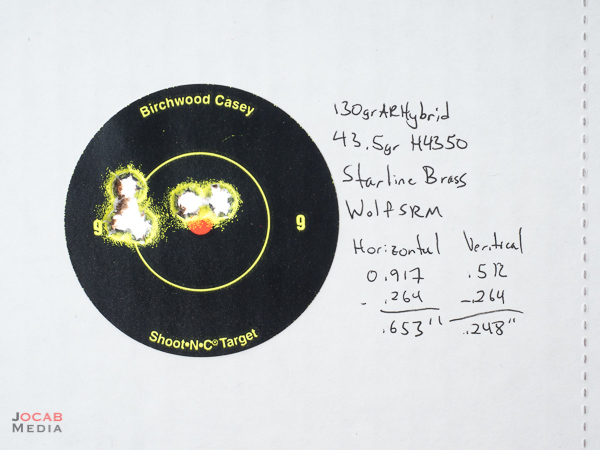 Birchwood Casey
9
9
Shoot•N•C® Target
130gr AR Hybrid
43.5gr H4350
Starline Brass
Wolf SRM
Horizontal Veritical
0.917 .512
- .264 -.264
.653" .248"
JOCAB
MEDIA